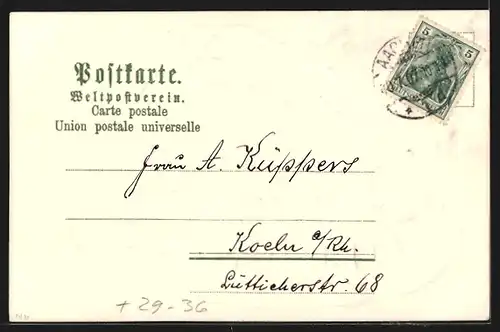 Postkarte.
Weltpostverein.
Carte postale
Union postale universelle
5 5
Frau A. Küppers
Koeln a/Rh.
Lütticherstr. 68
+ 29-36